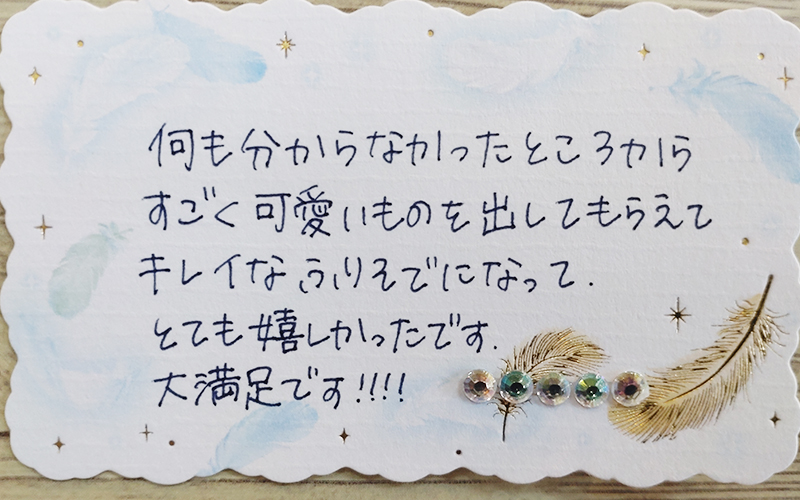 何も分からなかったところから
すごく可愛いものを出してもらえて
キレイなふりそでになって.
とても嬉しかったです.
大満足です!!!!